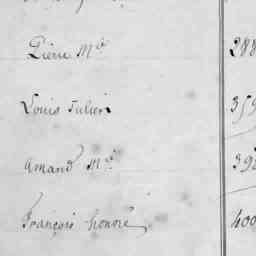 Pierre Mie 288
Louis Julien 359
Amand Mie 398
François honoré 400